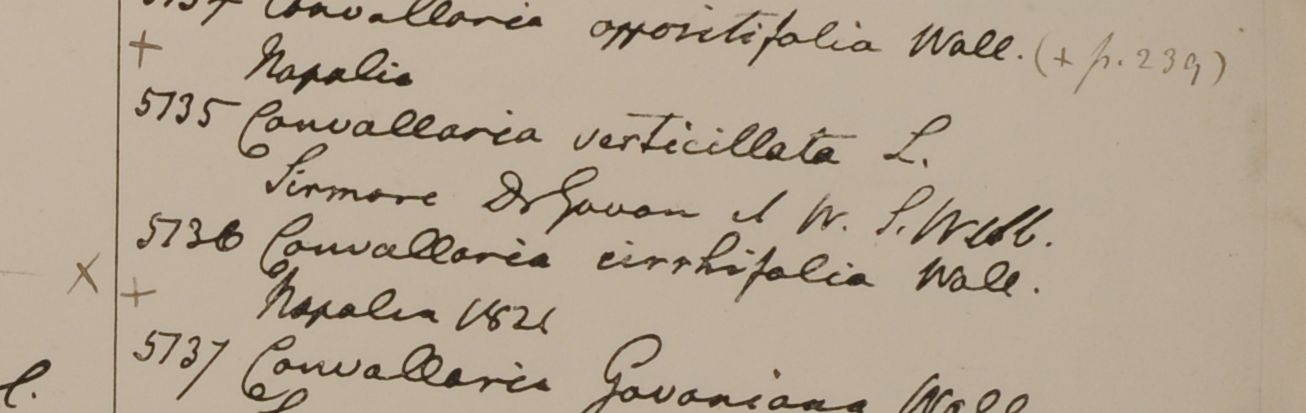 5134 Convallaria oppositifolia Wall. (+ p. 239)
+ Napalia
5135 Convallaria verticillata L.
Sirmore Dr Govan et W. S. Webb.
5136 Convallaria cirrhifolia Wall.
X + Napalia 1821
5137 Convallaria Govaniana Wall